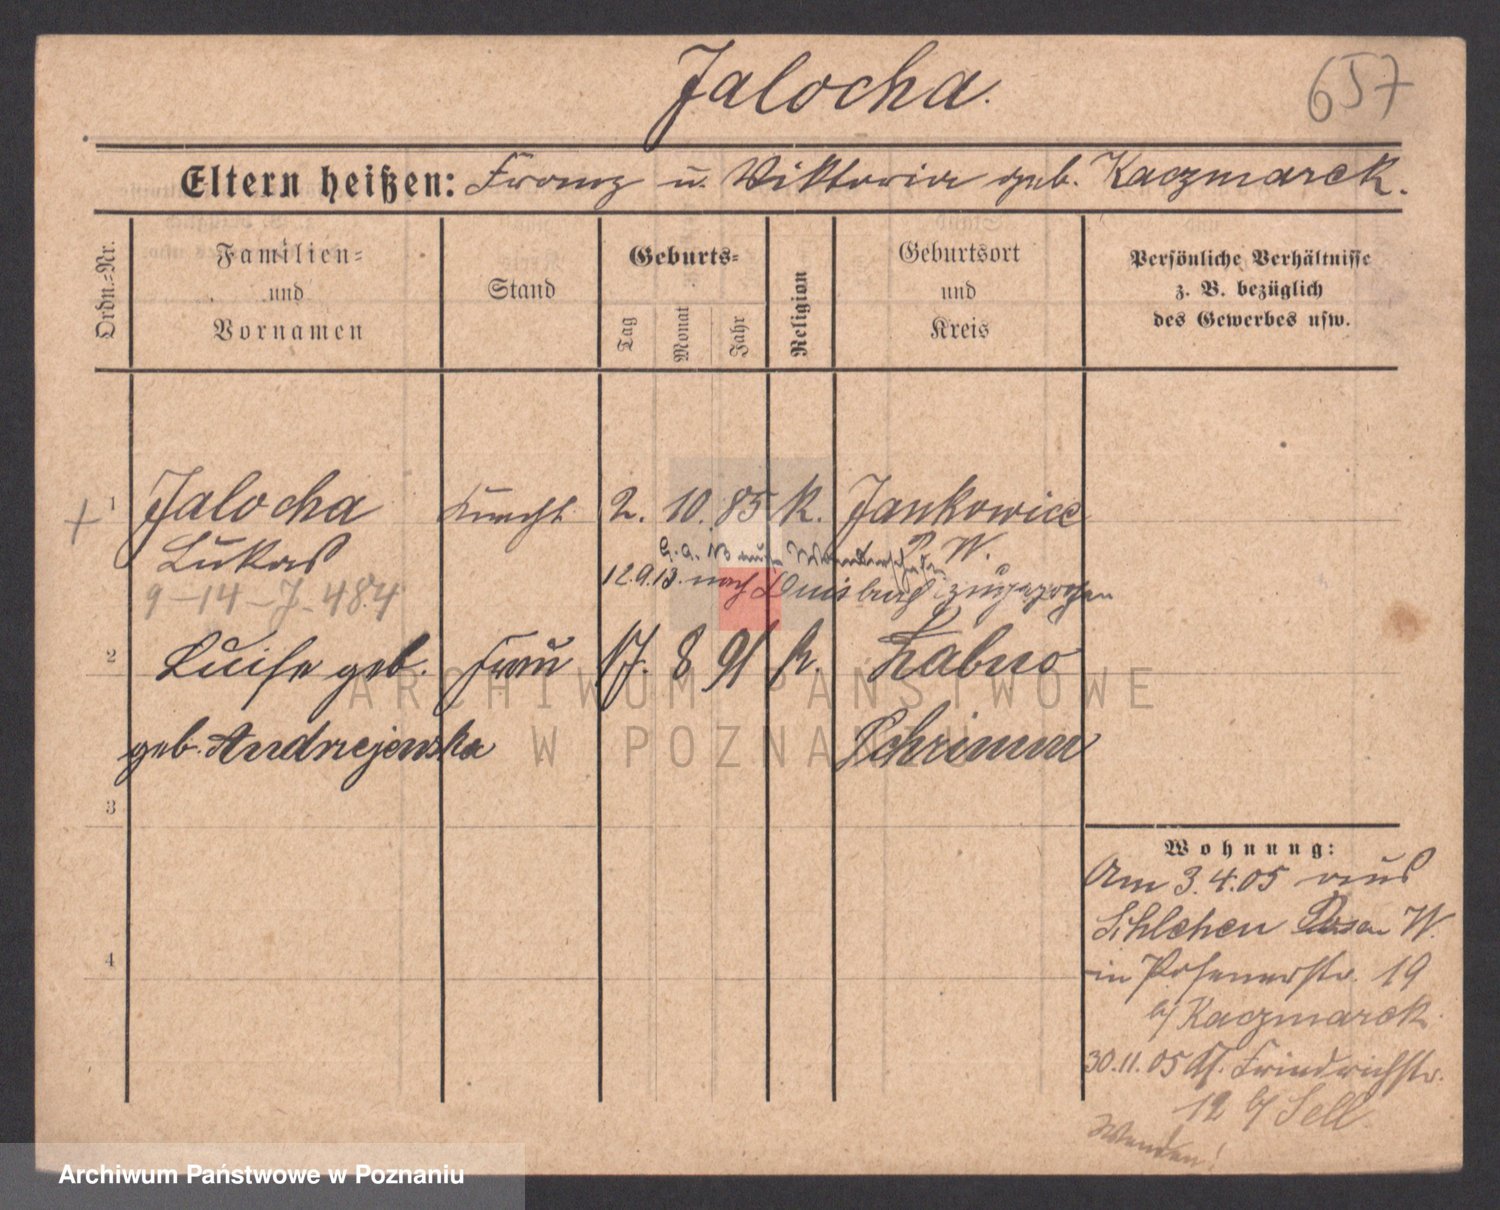 Jalocha.
657
Eltern heißen: Franz u. Viktoria geb. Kaczmarek.
Ordn.-Nr.
Familien-
und
Vornamen
Stand
Geburts-
Tag
Monat
Jahr
Religion
Geburtsort
und
Kreis
Persönliche Verhältnisse
z. B. bezüglich
des Gewerbes usw.
1 Jalocha Knecht 2. 10. 85 K. Jankowice
Lukas P. W.
12.9.13. nach Duisburg
9-14-J-484
2 Luise geb. Frau 17. 8 91 k. Labno
geb. Andrzejewska Schrimm
3
4
Wohnung:
Am 3.4.05 aus
Schlehen Posen W.
in Posenerstr. 19
b/ Kaczmarek
30.11.05 Friedrichstr.
12 b/ Sell
Wenden!
ARCHIWUM PAŃSTWOWE
W POZNANIU
Archiwum Państwowe w Poznaniu